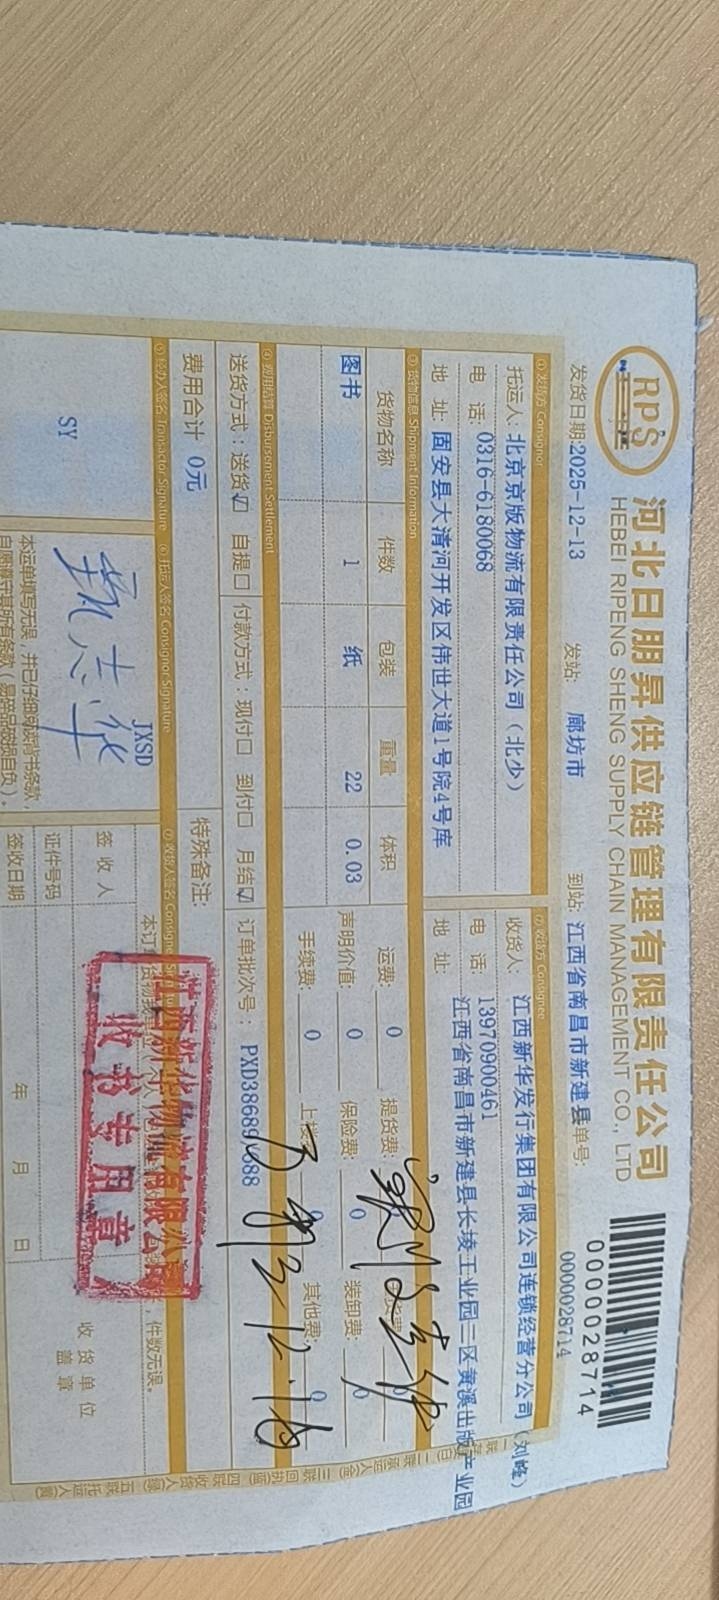 RPS
河北日朋昇供应链管理有限责任公司
HEBEI RIPENG SHENG SUPPLY CHAIN MANAGEMENT CO., LTD
0000028714
发货日期:2025-12-13 发站: 廊坊市 到站: 江西省南昌市新建县 单号: 0000028714
①发货方 Consignor ②收货方 Consignee
托运人: 北京京版物流有限责任公司（北少） 收货人: 江西新华发行集团有限公司连锁经营分公司（刘峰）
电 话: 0316-6180068 电 话: 13970900461
地 址: 固安县大清河开发区伟世大道1号院4号库 地 址: 江西省南昌市新建县长堎工业园三区黄溪出版产业园
③货物信息 Shipment Information
货物名称 件数 包装 重量 体积 运费: 0 提货费:
图书 1 纸 22 0.03 声明价值: 0 保险费: 0 装卸费:
手续费: 0 其他费: 0
④费用结算 Disbursement Settlement
送货方式: 送货☑ 自提□ 付款方式: 现付□ 到付□ 月结☑ 订单批次号:
费用合计 0元 特殊备注:
⑤经办人签名 Transactor Signature ⑥托运人签名 Consignor Signature ⑦收货人签名
SY JXSD
甄志华
件数无误。
江西新华物流有限公司
收书专用章
签 收 人 收货单位
证件号码 盖 章
本运单填写无误，并已仔细阅读背书条款
签收日期 年 月 日